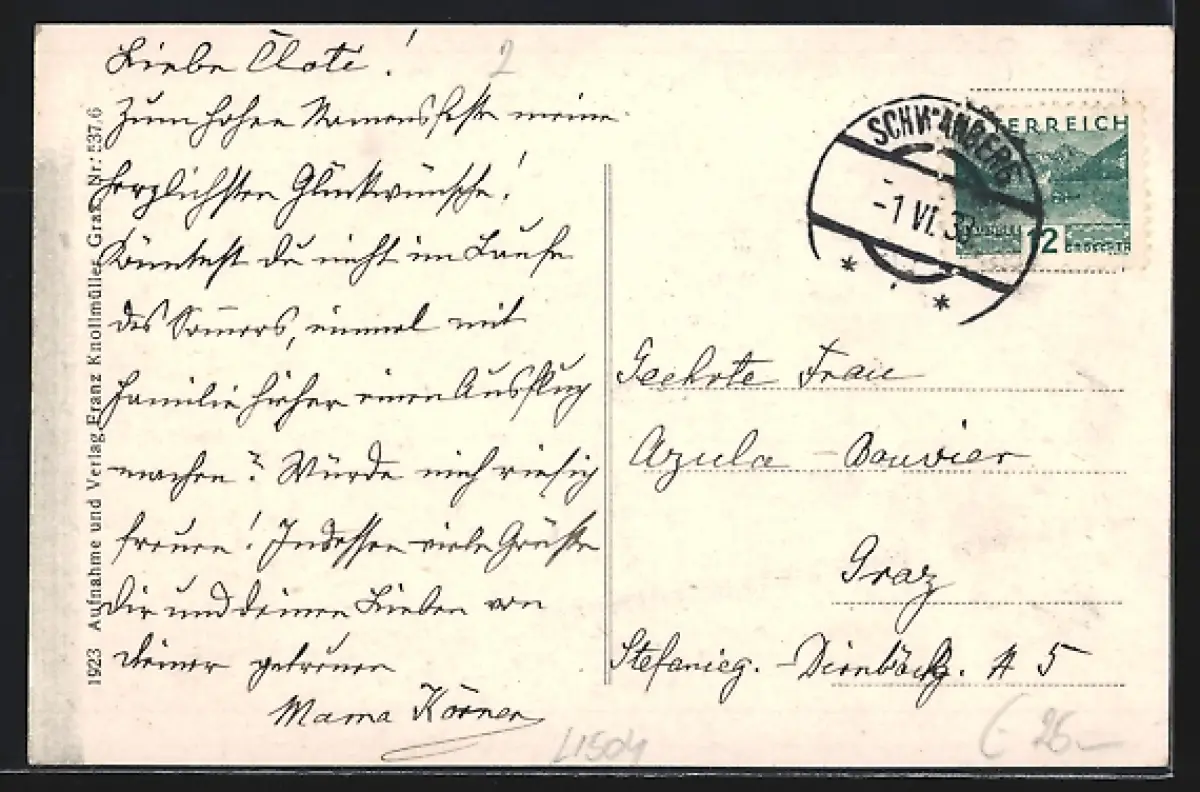 Liebe Cloté!
Zum hohen Namensfeste meine
herzlichsten Glückwünsche!
Könntest du nicht im Laufe
des Somers, einmal mit
Familie hieher einen Ausflug
machen? Würde mich riesig
freuen! Indessen viele Grüße
dir und deinen Lieben von
deiner getreuen
Mama Körner
2
1923 Aufnahme und Verlag Franz Knollmüller, Graz Nr. 537/6
SCHWANBERG
-1 VI. 3
ÖSTERREICH
12 GROSCHEN
Geehrte Frau
Azula - Bouvier
Graz
Stefanieg. - Dirnböckg. # 5
L1504
26.-